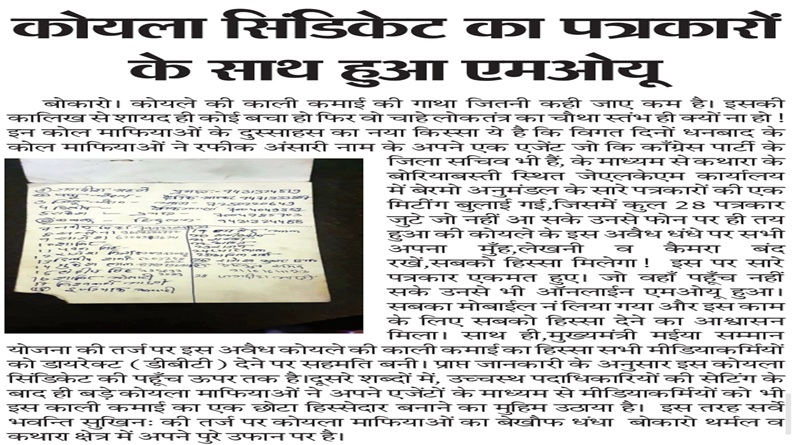 कोयला सिंडिकेट का पत्रकारों
के साथ हुआ एमओयू
बोकारो। कोयले की काली कमाई की गाथा जितनी कही जाए कम है। इसकी
कालिख से शायद ही कोई बचा हो फिर वो चाहे लोकतंत्र का चौथा स्तंभ ही क्यों ना हो !
इन कोल माफियाओं के दुस्साहस का नया किस्सा ये है कि विगत दिनों धनबाद के
कोल माफियाओं ने रफीक अंसारी नाम के अपने एक एजेंट जो कि काँग्रेस पार्टी के
जिला सचिव भी हैं, के माध्यम से कथारा के
बोरियाबस्ती स्थित जेएलकेएम कार्यालय
में बेरमो अनुमंडल के सारे पत्रकारों की एक
मिटींग बुलाई गई,जिसमें कुल 28 पत्रकार
जुटे जो नहीं आ सके उनसे फोन पर ही तय
हुआ की कोयले के इस अवैध धंधे पर सभी
अपना मुँह,लेखनी व कैमरा बंद
रखें,सबको हिस्सा मिलेगा! इस पर सारे
पत्रकार एकमत हुए। जो वहाँ पहूँच नहीं
सके उनसे भी ऑनलाईन एमओयू हुआ।
सबका मोबाईल नं लिया गया और इस काम
के लिए सबको हिस्सा देने का आश्वासन
मिला। साथ ही,मुख्यमंत्री मईया सम्मान
योजना की तर्ज पर इस अवैध कोयले की काली कमाई का हिस्सा सभी मीडियाकर्मियों
को डायरेक्ट (डीबीटी) देने पर सहमति बनी। प्राप्त जानकारी के अनुसार इस कोयला
सिंडिकेट की पहूँच ऊपर तक है।दूसरे शब्दों में, उच्चस्थ पदाधिकारियों की सेटिंग के
बाद ही बड़े कोयला माफियाओं ने अपने एजेंटों के माध्यम से मीडियाकर्मियों को भी
इस काली कमाई का एक छोटा हिस्सेदार बनाने का मुहिम उठाया है। इस तरह सर्वे
भवन्ति सुखिनः की तर्ज पर कोयला माफियाओं का बेखौफ धंधा बोकारो थर्मल व
कथारा क्षेत्र में अपने पुरे उफान पर है।